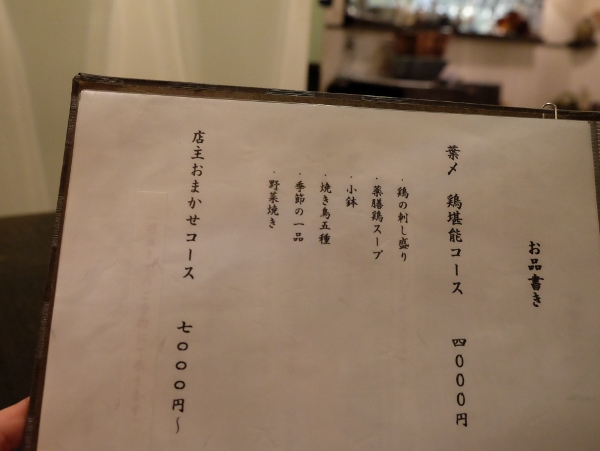 お品書き
葉〆 鶏堪能コース 四〇〇〇円
・鶏の刺し盛り
・薬膳鶏スープ
・小鉢
・焼き鳥五種
・季節の一品
・野菜焼き
店主おまかせコース 七〇〇〇円～